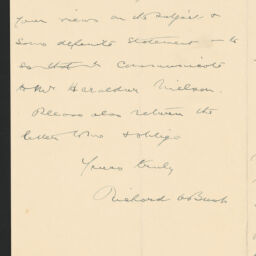 Your views on the subject &
some definite statement - to
so that I communicate
to Mr Haraldur Nielson.
Please also return the
letter & oblige
Yours truly
Richard A Bush